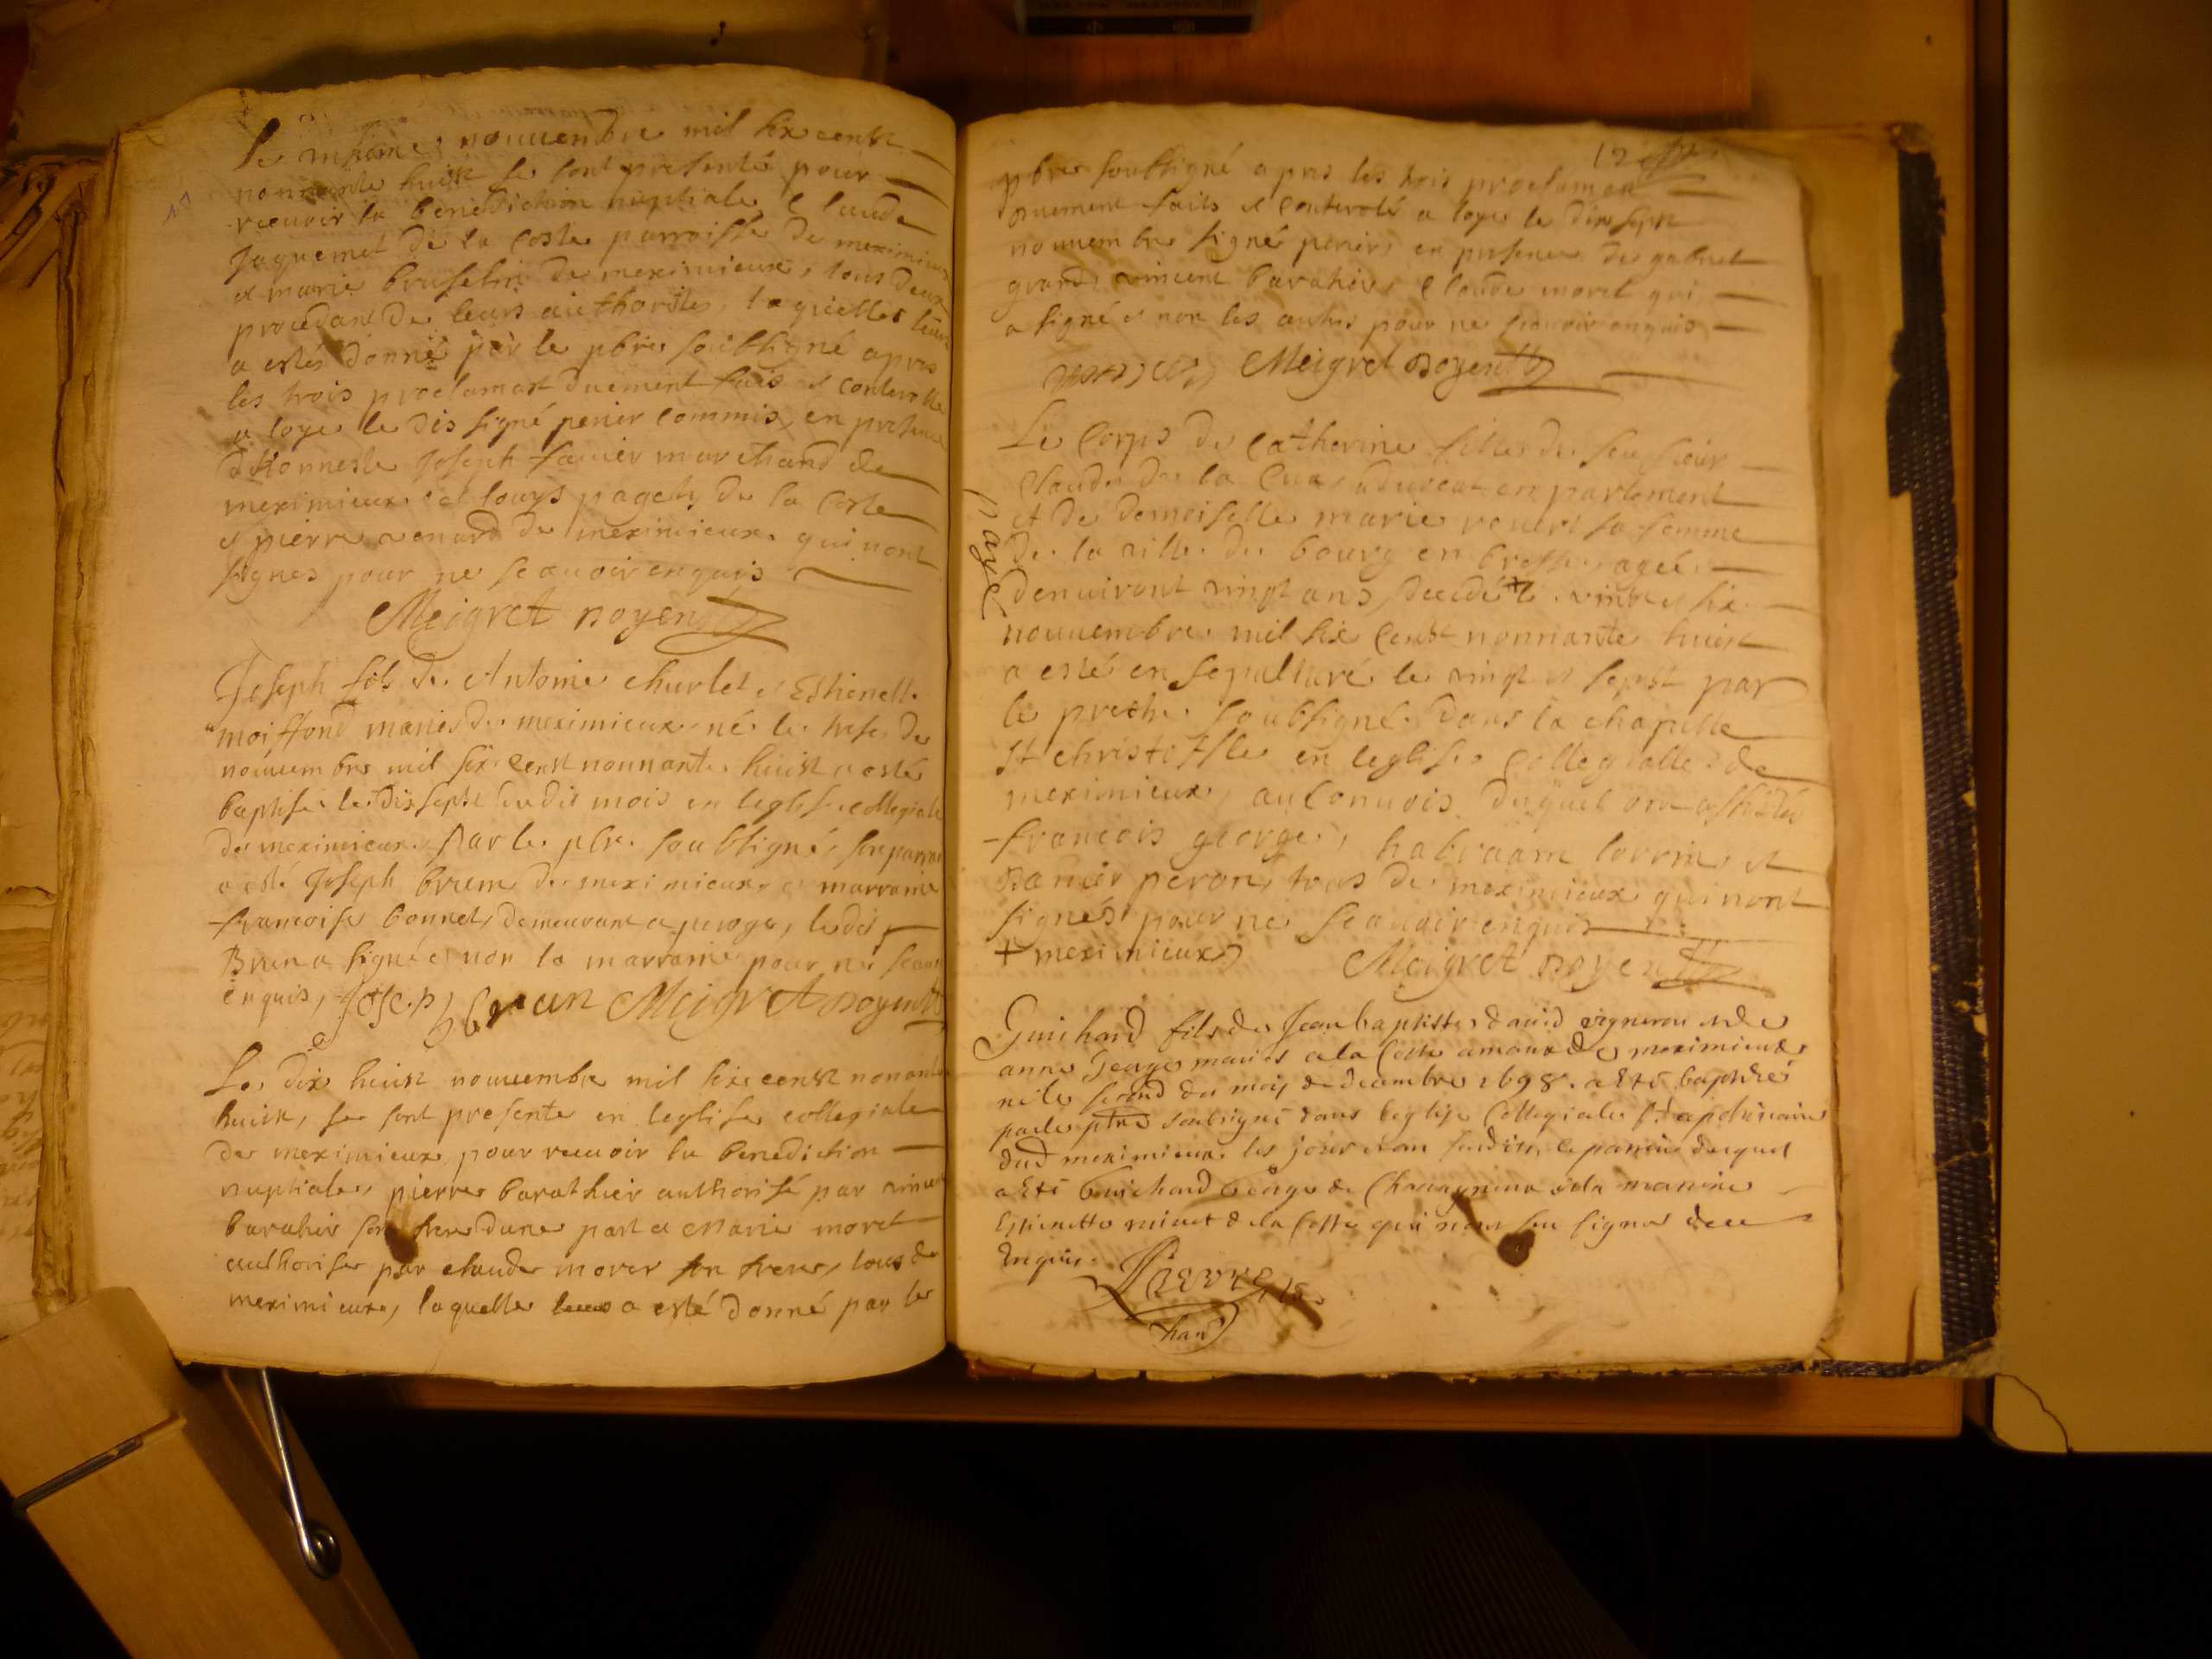 nouvembre mil six cents
nonnante huict se sont presenté pour
recevoir la benediction nuptiale Claude
Jaquemet de la Coste parroisse de meximieux
et marie de meximieux, tous deux
procedant de leurs authorites, laquelle leur
a estés donné par le pbre soubsigné apres
les trois proclamaõt duement fais et controlle
a loye le dis signé perier commis, en presence
dhonneste Joseph favier marchand de
meximieux et louys pagety de la Coste
et pierre renard de meximieux qui nont
signes pour ne scavoir enquis
Meigret doyen
Joseph fils de Antoine churlet et Estienette
moiffond mariés de meximieux né le trese de
nouvembre mil six cents nonnante huict a esté
baptisé le dissept dudit mois en leglise collegiale
de meximieux par le pbr. soubsigné, son parrain
a esté Joseph brun de meximieux et marraine
francoise bonnet, demeurant a peroge, ledit
Brun a signé et non la marraine pour ne scavoir
enquis, Joseph brun Meigret doyen
Le dix huict nouvembre mil six cents nonante
huict, se sont presenté en leglise collegiale
de meximieux pour recevoir la benediction
nuptiale, pierre barathier authorisé par vincent
barahir son frere dune part et Marie moret
authorisé par claude moret son frere, tous de
meximieux, laquelle leur a esté donné par le
12
pbre soubsigné apres les trois proclamaõn
duement faits et controlé a loye le dix sept
nouvembre signé perier, en presence de gabriel
grand, vincent barahier, Claude moret qui
a signé et non les autres pour ne scavoir enquis
Meigret doyen
payé
Le Corps de Catherine fille de feu sieur
Claude de la Cua, advocat en parlement
et de demoiselle marie rouvet sa femme
de la ville de bourg en bresse, agée
denviront vingt ans, decedé + le vingt et six
nouvembre mil six Cents nonnante huict
a esté ensepulturé le vingt et sept par
le pretre soubsigné dans la chapelle
St christoffle en leglise collegialle de
meximieux, au Convois duquel ont assisté
francois george, habraam lorrin, et
Danier peron, tous de meximieux qui nont
signés pour ne scavoir enquis
+ meximieux
Meigret doyen
Guichard fils de Jean baptiste david vigneron et de
anne George mariés a la Coste amont de meximieux
né le second du mois de decembre 1698. a esté baptisé
par le ptre soubsigné dans leglise Collegiale St apolinaire
dud meximieux les jour et an susdits, le parrain duquel
a esté Guichard George de et la marraine
Estienette minet de la Coste qui nont sceu signer de ce
Enquis.